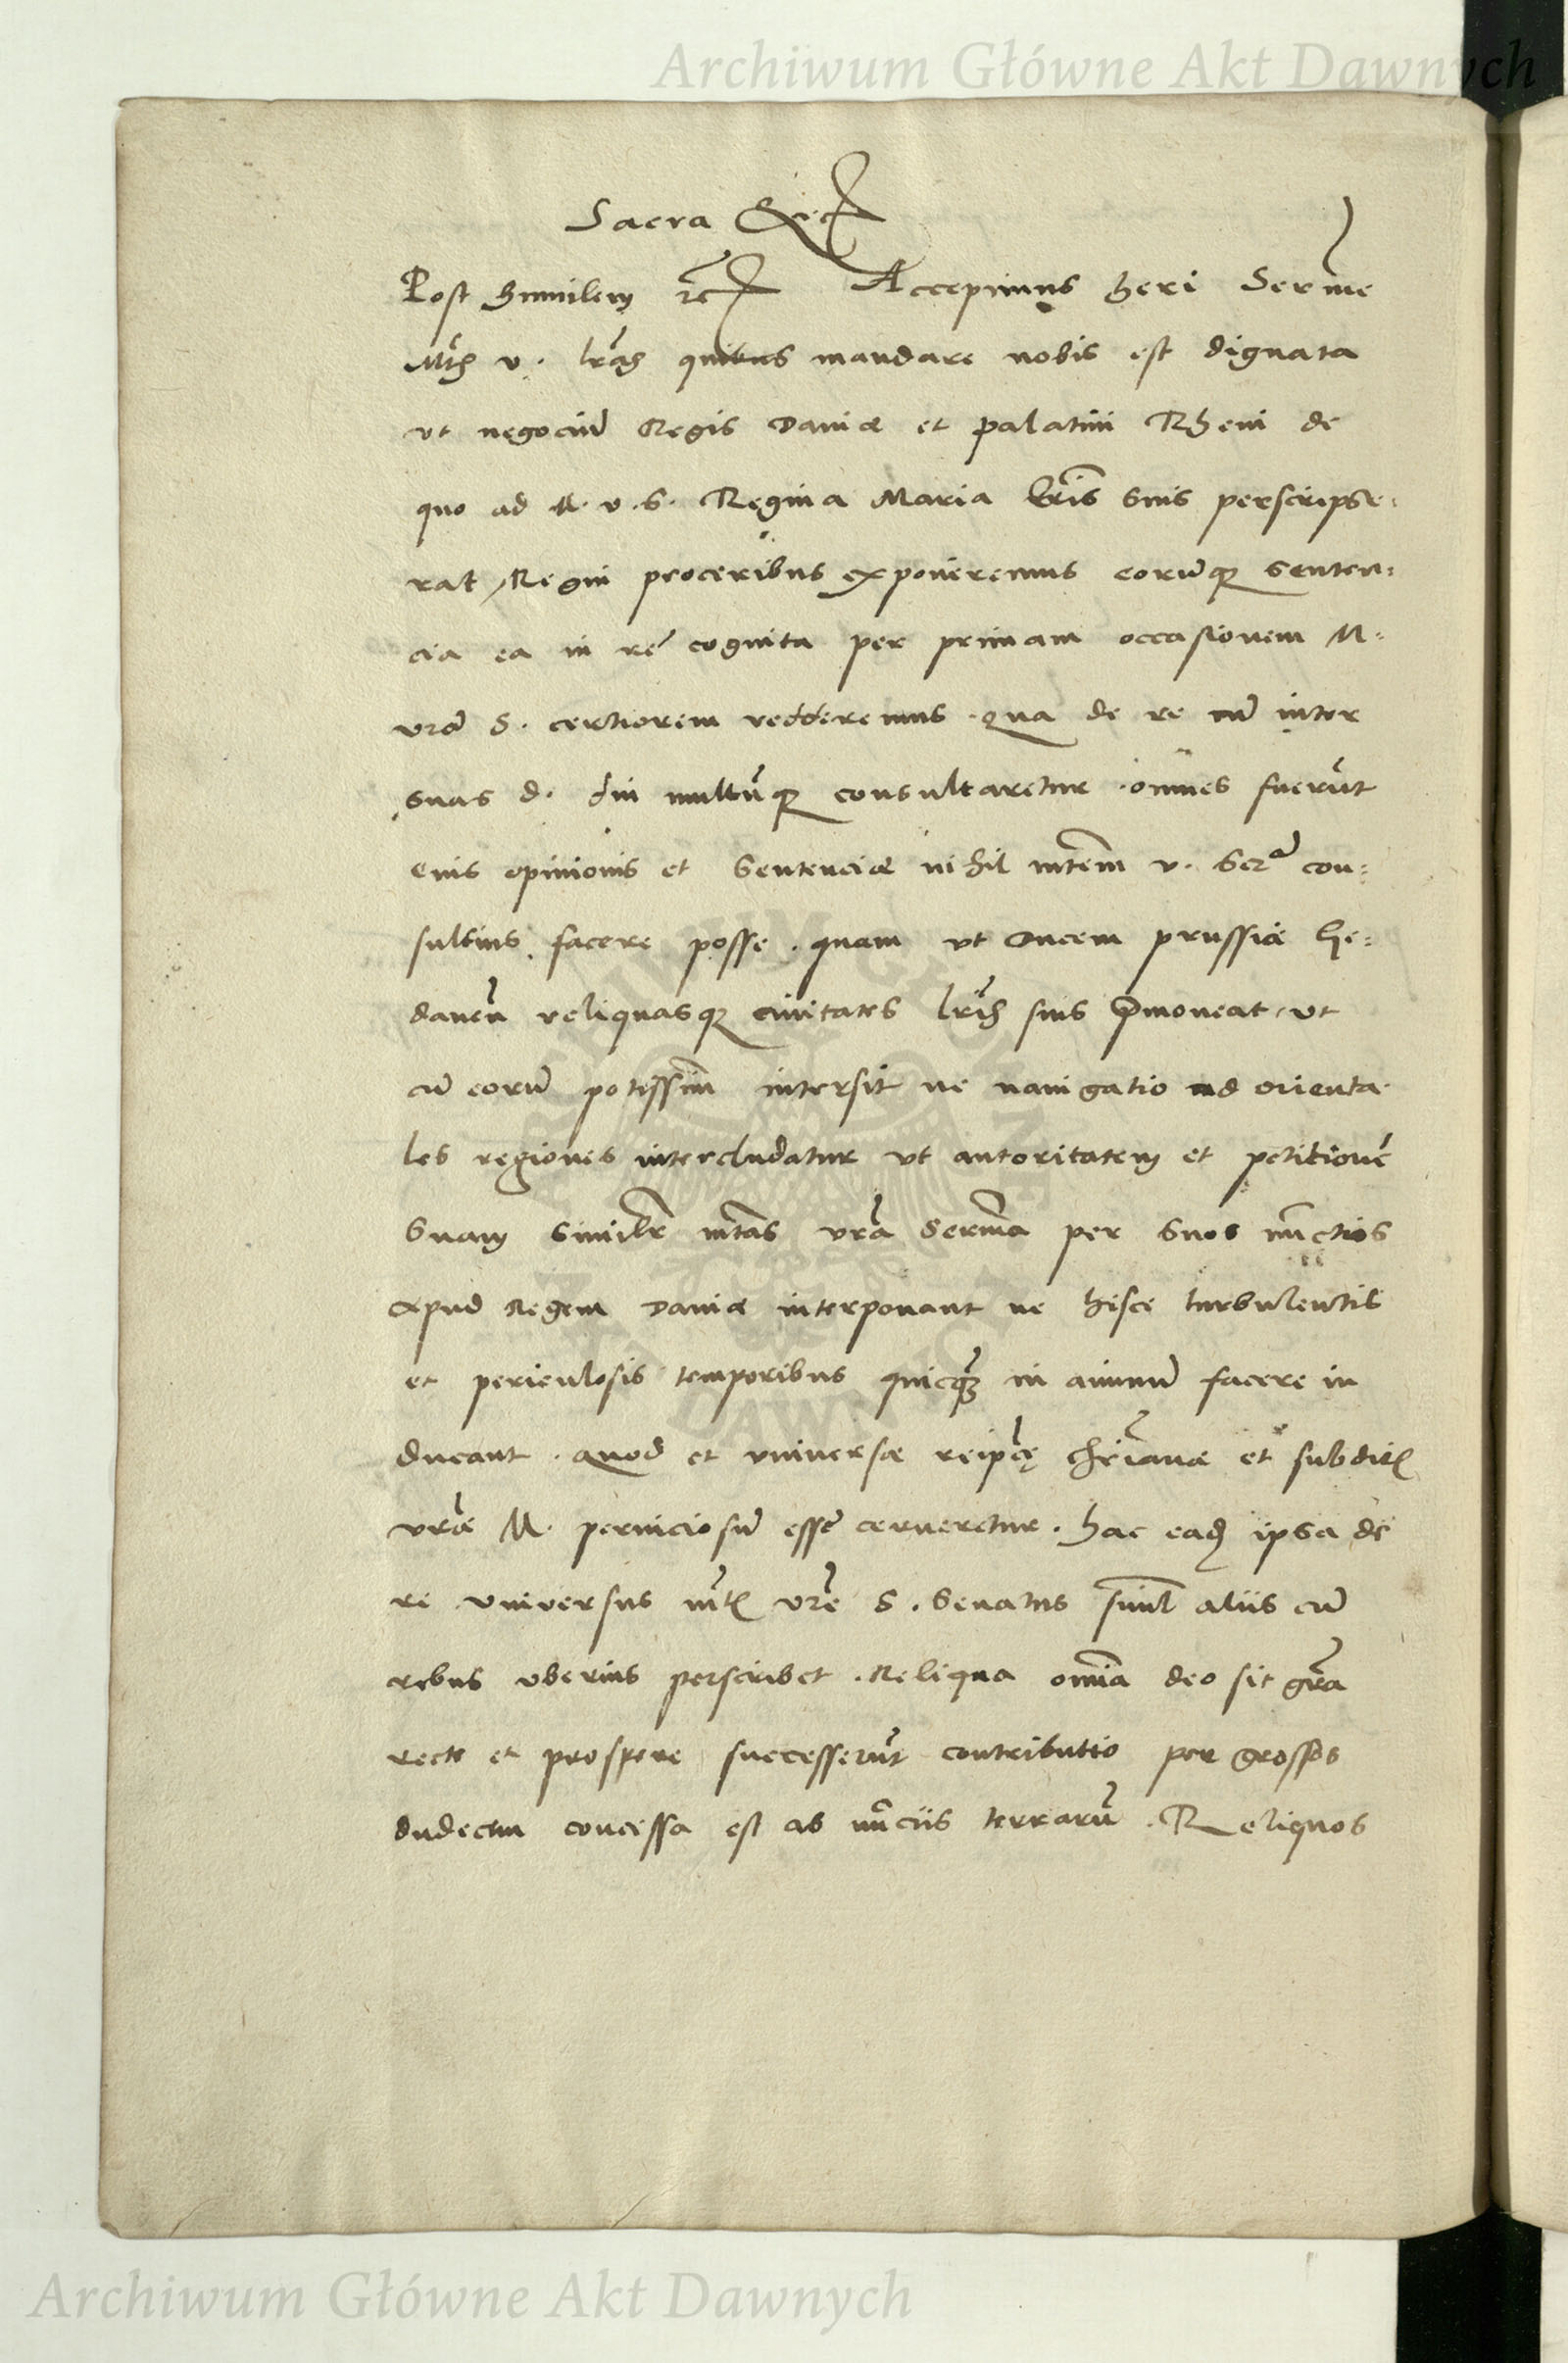 Archiwum Główne Akt Dawnych
Sacra &c
Post humilem &c Accepimus heri Serme
Mtis v. lras quibus mandare nobis est dignata
ut negociu Regis Daniæ et palatini Rheni de
quo ad M. v. S. Regina Maria lris suis perscripse:
rat Regni proceribus exponeremus eorumq senten:
cia ea in re cognita per primam occasionem M.
vram S. certiorem redderemus. qua de re cu inter
suas d. diu multumq consultaretur. omnes fuerut
eius opinionis et Sentenciæ nihil mtem v. Serm con:
sultius facere posse. quam ut Ducem prussiæ Ge:
danen reliquasq civitates lris suis pmoneat, ut
cu eoru potissim intersit ne navigatio ad orienta
les regiones intercludatur ut autoritatem et petitione
Suam similr mtas vra Serma per Suos nuctios
apud Regem Daniæ interponant ne hisce turbulentis
et periculosis temporibus quicq in animu facere in
ducant. quod et universæ reipce chrianæ et subdit
vræ M. perniciosu esse cerneretur. hac eadem ipsa de
re universus mt vre S. Senatus simul aliis cu
rebus uberius perscribet. Reliqua omia deo sit gra
recte et prospere successerut contributio per grossos
duodecim concessa est ab nuciis terraru. Reliquos
Archiwum Główne Akt Dawnych